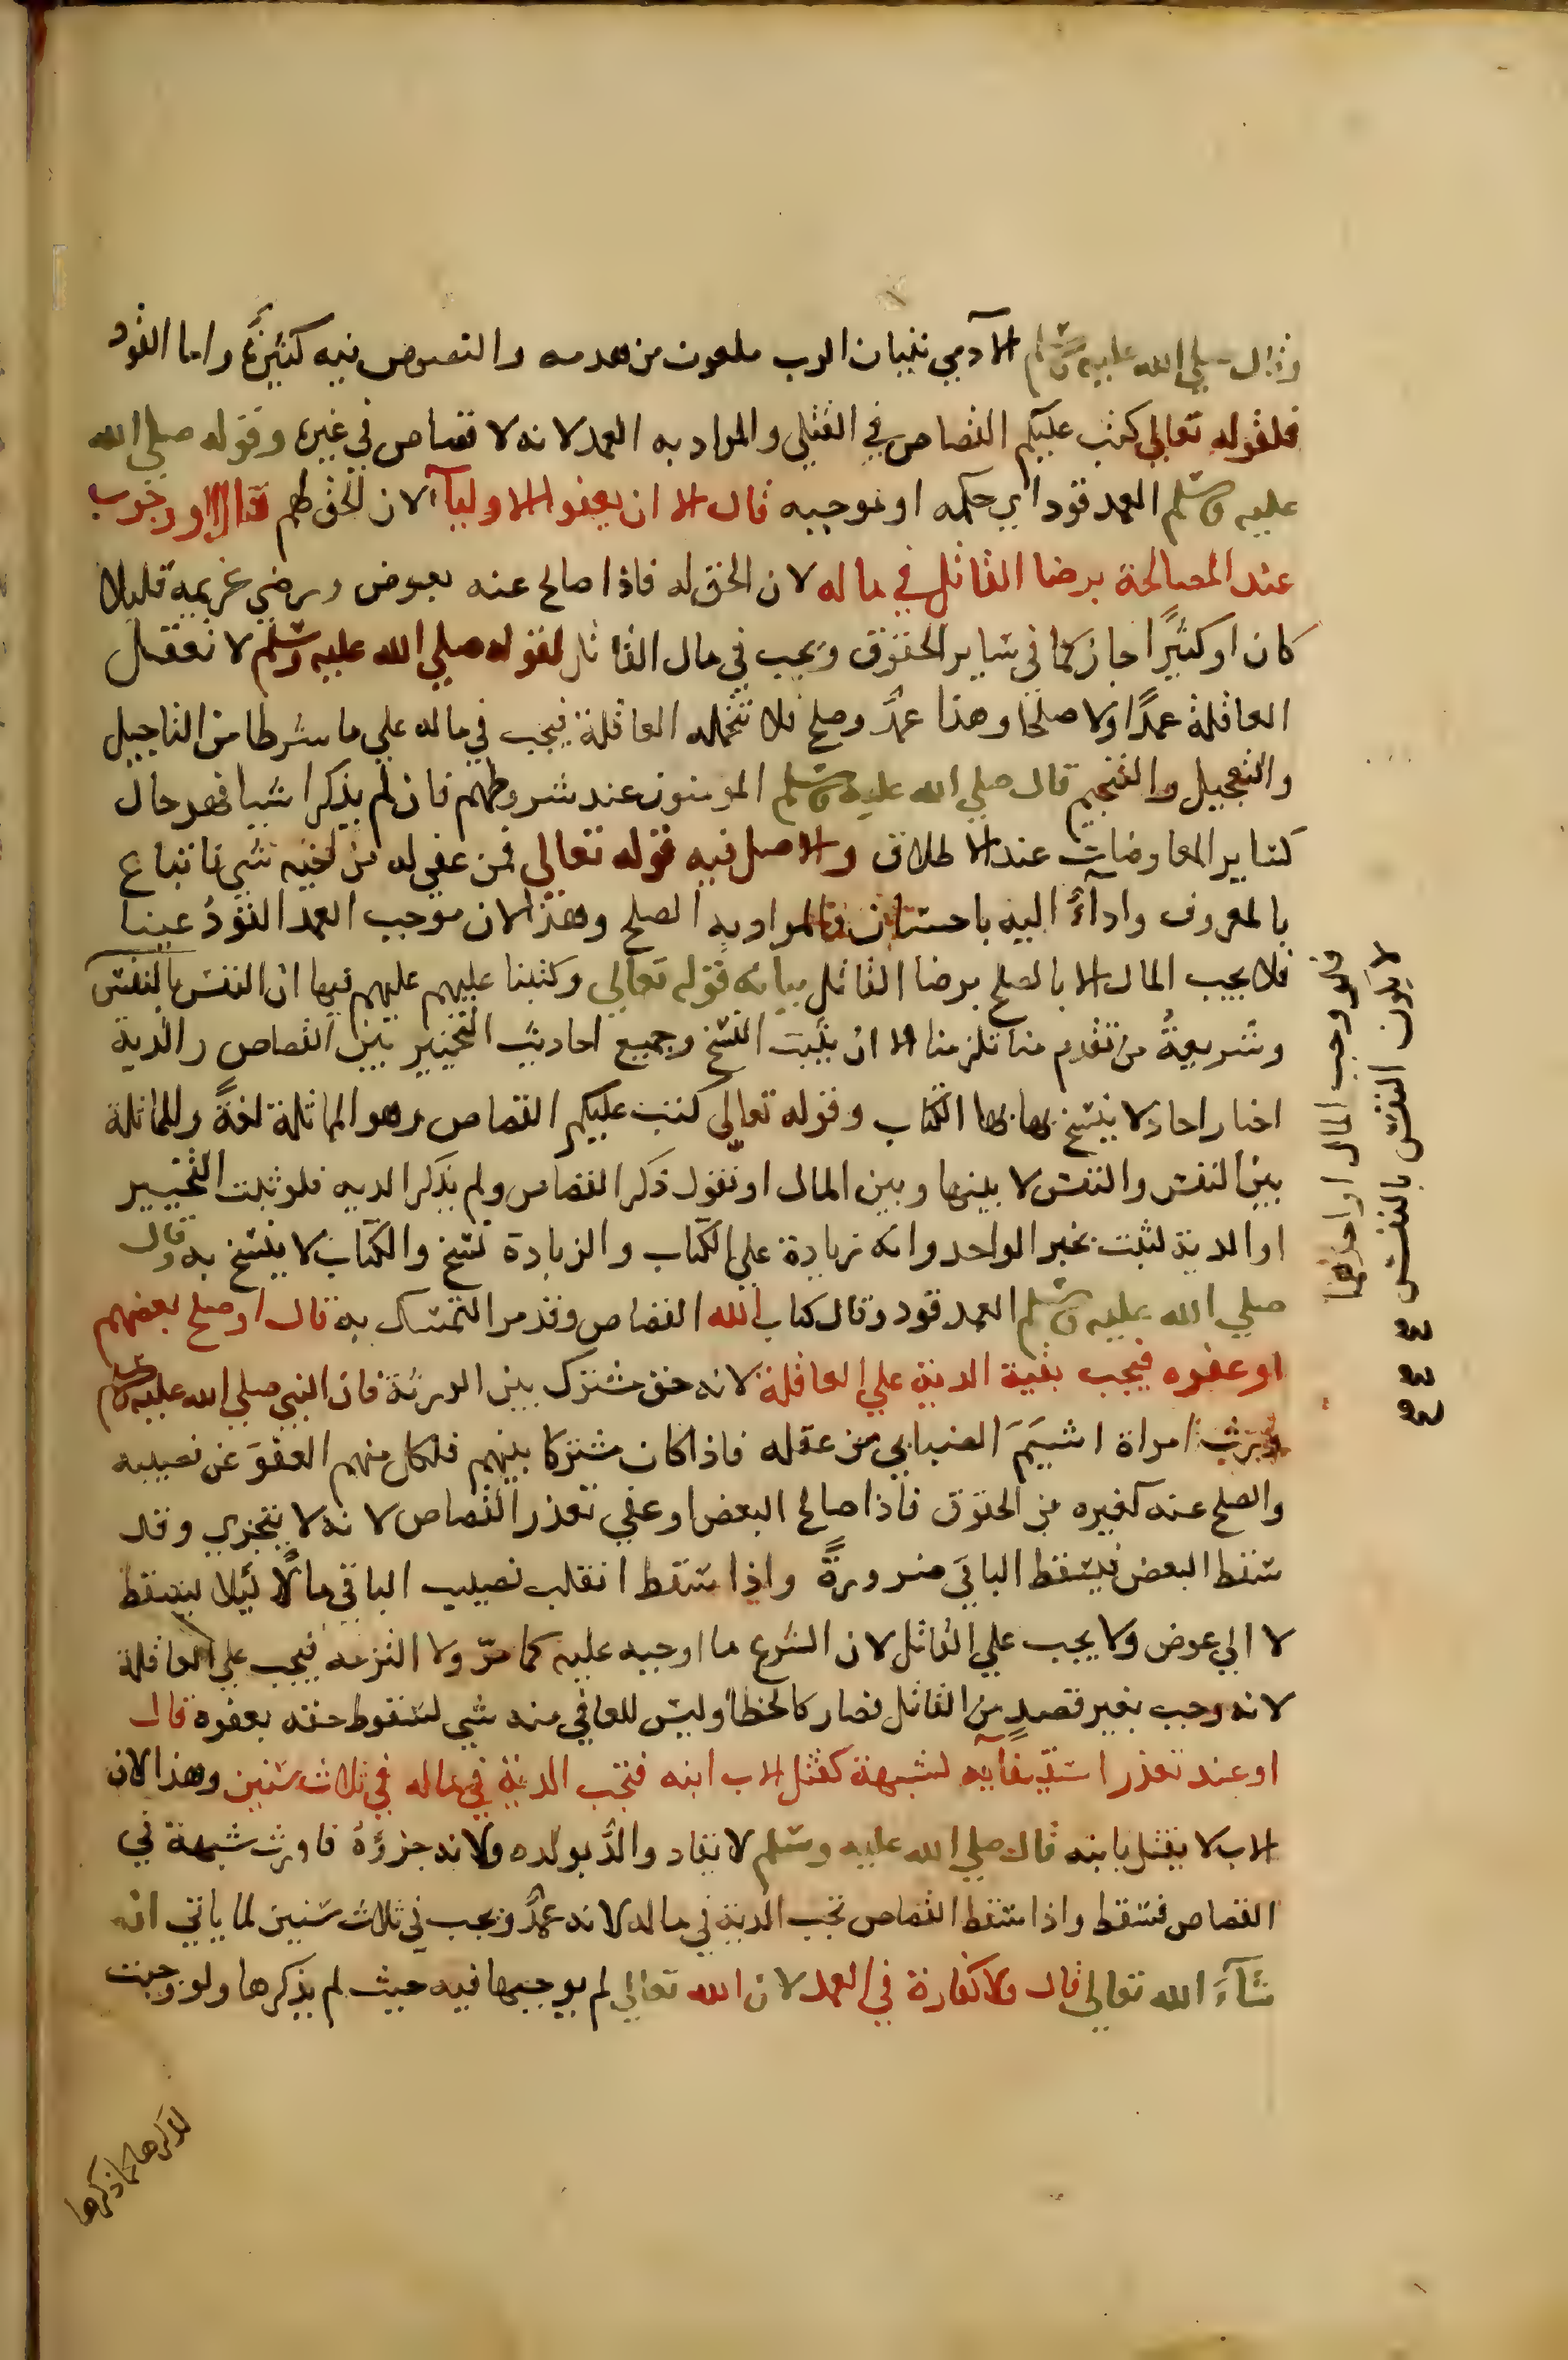 وقال صلي الله عليه وسلم الآدمي بنيان الرب ملعون من هدمه والنصوص فيه كثيرة واما القود
فلقوله تعالي كتب عليكم القصاص في القتلي والمراد به العمد لانه لا قصاص في غيره وقوله صلي الله
عليه وسلم العمد قود اي حكمه او موجبه قال الا ان يعفو الاوليآ لان الحق لهم قال او وجوب
عند المصالحة برضا القاتل في ماله لان الحق له فاذا صالح عنه بعوض ورضي غريمه قليلا
كان او كثيرًا جاز كما في ساير الحقوق ويجب في مال القاتل لقوله صلي الله عليه وسلم لا تعقل
العاقلة عمدًا ولا صلحًا وهذا عمدٌ وصلح فلا تتحمله العاقلة فيجب في ماله علي ما شرطا من التاجيل
والتعجيل والتنجيم قال صلي الله عليه وسلم المومنون عند شروطهم فان لم يذكرا شيا فهو حال
كساير المعاوضات عند الاطلاق والاصل فيه قوله تعالي فمن عفي له من اخيه شي فاتباع
بالمعروف وادآءٌ اليه باحسان والمراد به الصلح وهذا لان موجب العمد القودُ عينا
فلا يجب المال الا بالصلح برضا القاتل بيانه قوله تعالي وكتبنا عليهم عليهم فيها ان النفس بالنفس
وشريعةُ من تقدم منا تلزمنا الا ان يثبت النسخ وجميع احاديث التخيير بين القصاص والدية
اخبار احاد لا ينسخ بها بها الكتاب وقوله تعالي كتب عليكم القصاص وهو المماثلة لغةً والمماثلة
بين النفس والنفس لا بينها وبين المال او نقول ذكر القصاص ولم يذكر الديه فلو ثبت التخيير
او الدية لثبت بخبر الواحد وانه زيادة علي الكتاب والزيادة نسخ والكتاب لا ينسخ به وقال
صلي الله عليه وسلم العمد قود وقال كتاب الله القصاص وقد مر التمسك به قال او صلح بعضهم
او عفوه فيجب بقية الدية علي العاقلة لانه حق مشترك بين الورثة فان النبي صلي الله عليه وسلم
ورث امراة اشيَمَ الضبابي من عقله فاذا كان مشتركا بينهم فلكل منهم العفوَ عن نصيبه
والصلح عنه كغيره من الحقوق فاذا صالح البعض او عفي تعذر القصاص لانه لا يتجزي وقد
سقط البعض فيسقط الباقي ضرورةً واذا سقط انقلب نصيب الباقي مالًا ليلا يسقط
لا الي عوض ولا يجب علي القاتل لان الشرع ما اوجبه عليه كما مرّ ولا التزمه فيجب علي العاقلة
لانه وجب بغير قصدٍ من القاتل فصار كالخطا وليس للعافي منه شي لسقوط حقه بعفوه قال
او عند تعذر استيفايه لشبهة كقتل الاب ابنه فتجب الدية في ماله في ثلاث سنين وهذا لان
الاب لا يقتل بابنه قال صلي الله عليه وسلم لا يقاد والدٌ بولده ولانه جزؤهُ فاورث شبهة في
القصاص فسقط واذا سقط القصاص تجب الدية في ماله لانه عمدٌ وتجب في ثلاث سنين لما ياتي انه
شآءَ الله تعالي قال ولا كفارة في العمد لان الله تعالي لم يوجبها فيه حيث لم يذكرها ولو وجبت
لذكرها كما ذكرها
فلو وجب المال او احدهما
لا يكون النفس بالنفس